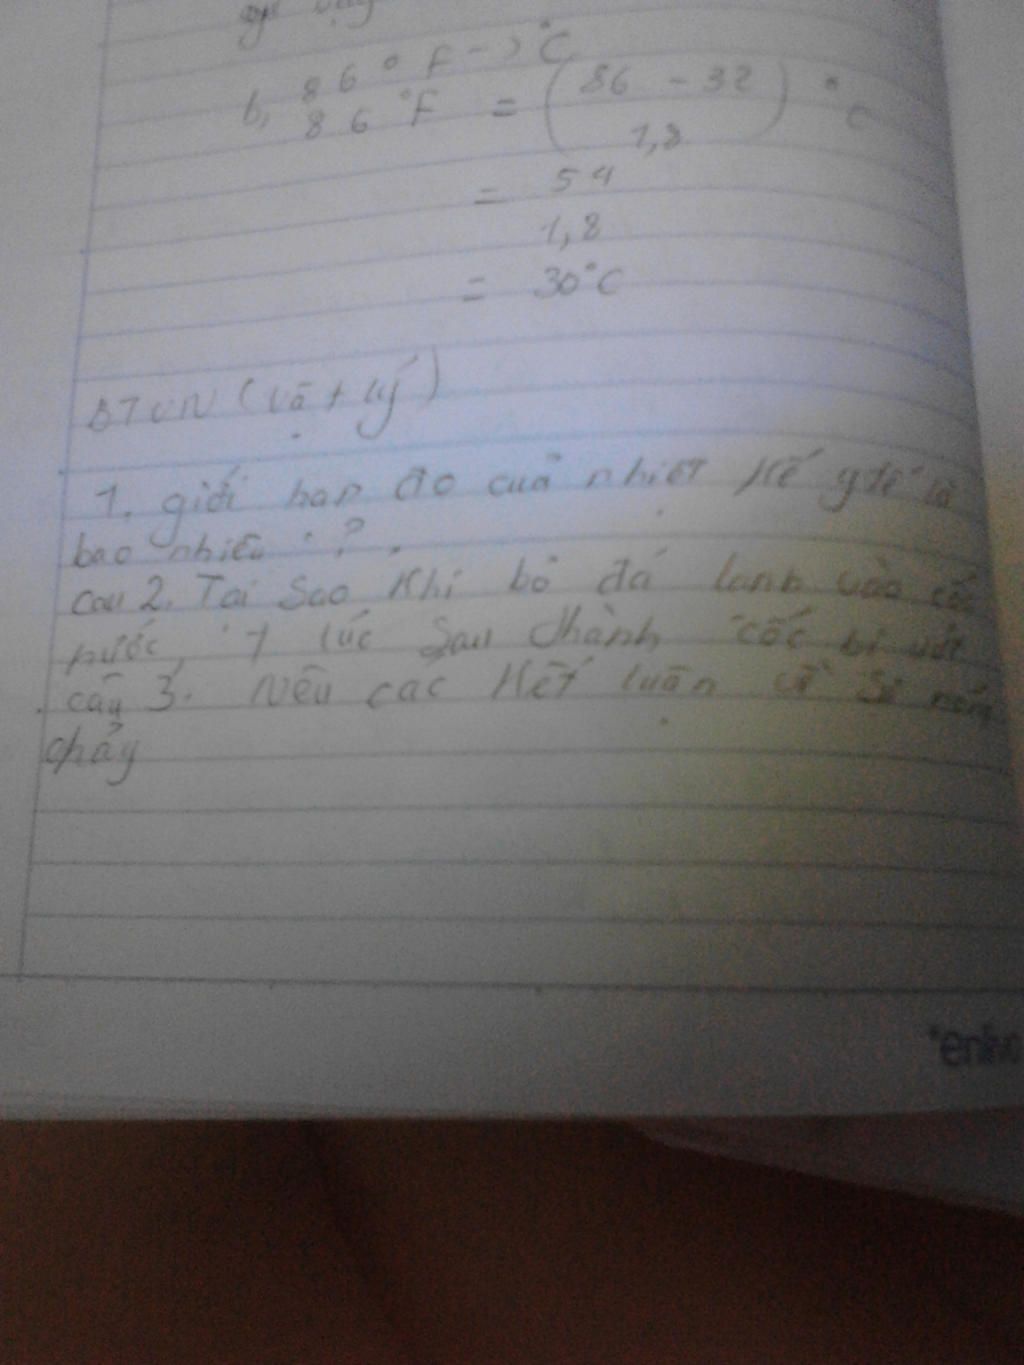 b, 86°F -> °C
86°F = (86 - 32 / 1,8) °C
= 54
1,8
= 30°C
BTVN (vật lý)
1. giới hạn đo của nhiệt kế y tế là
bao nhiêu ?
câu 2. Tại sao khi bỏ đá lạnh vào cốc
nước, 1 lúc sau thành cốc bị ướt
câu 3. Nêu các kết luận về sự nóng
chảy